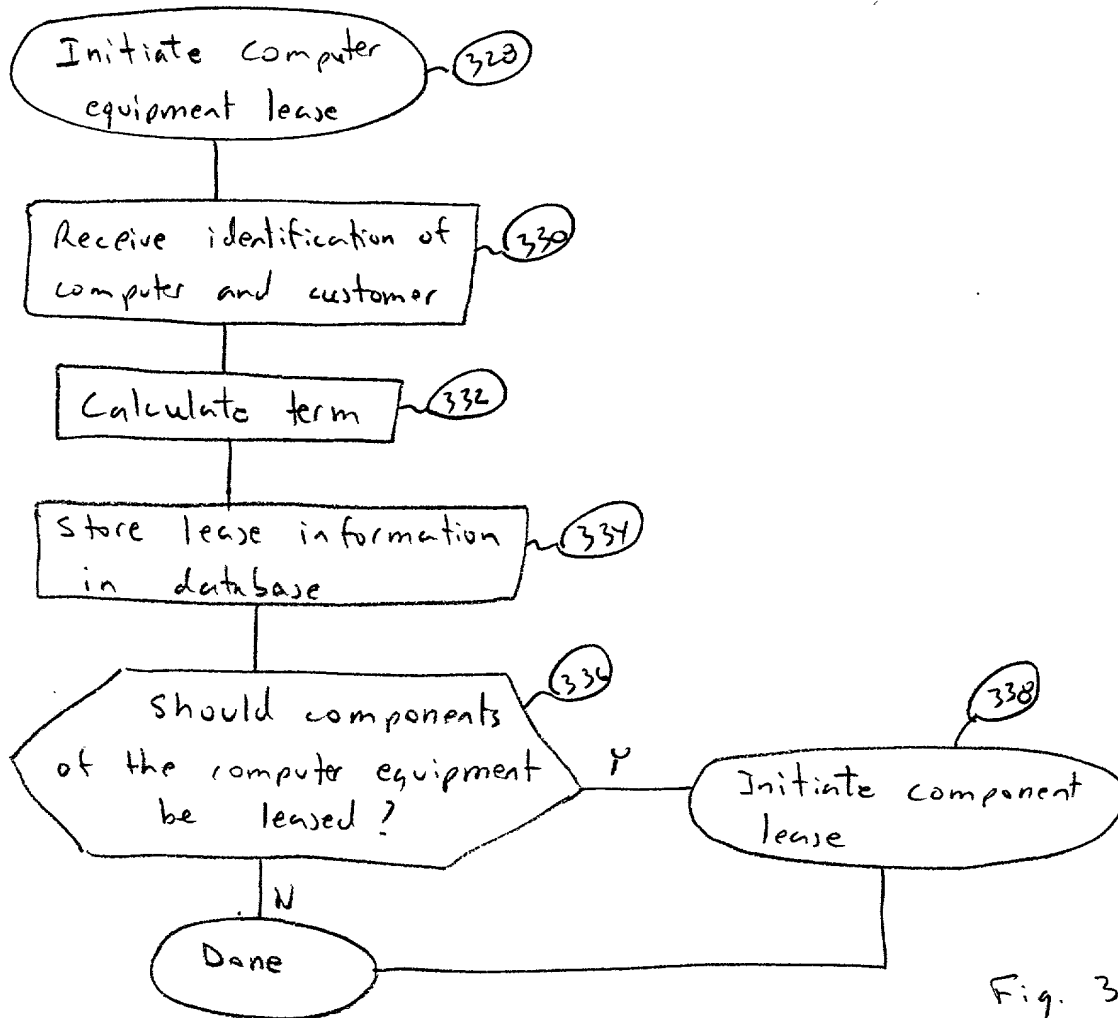 Initiate computer
equipment lease
328
Receive identification of
computer and customer
330
Calculate term
332
Store lease information
in database
334
Should components
of the computer equipment
be leased?
336
Y
338
Initiate component
lease
N
Done
Fig. 3